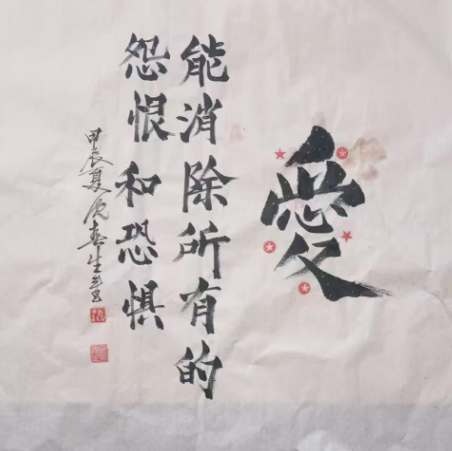 愛
能消除所有的
怨恨和恐惧
甲辰夏
春生